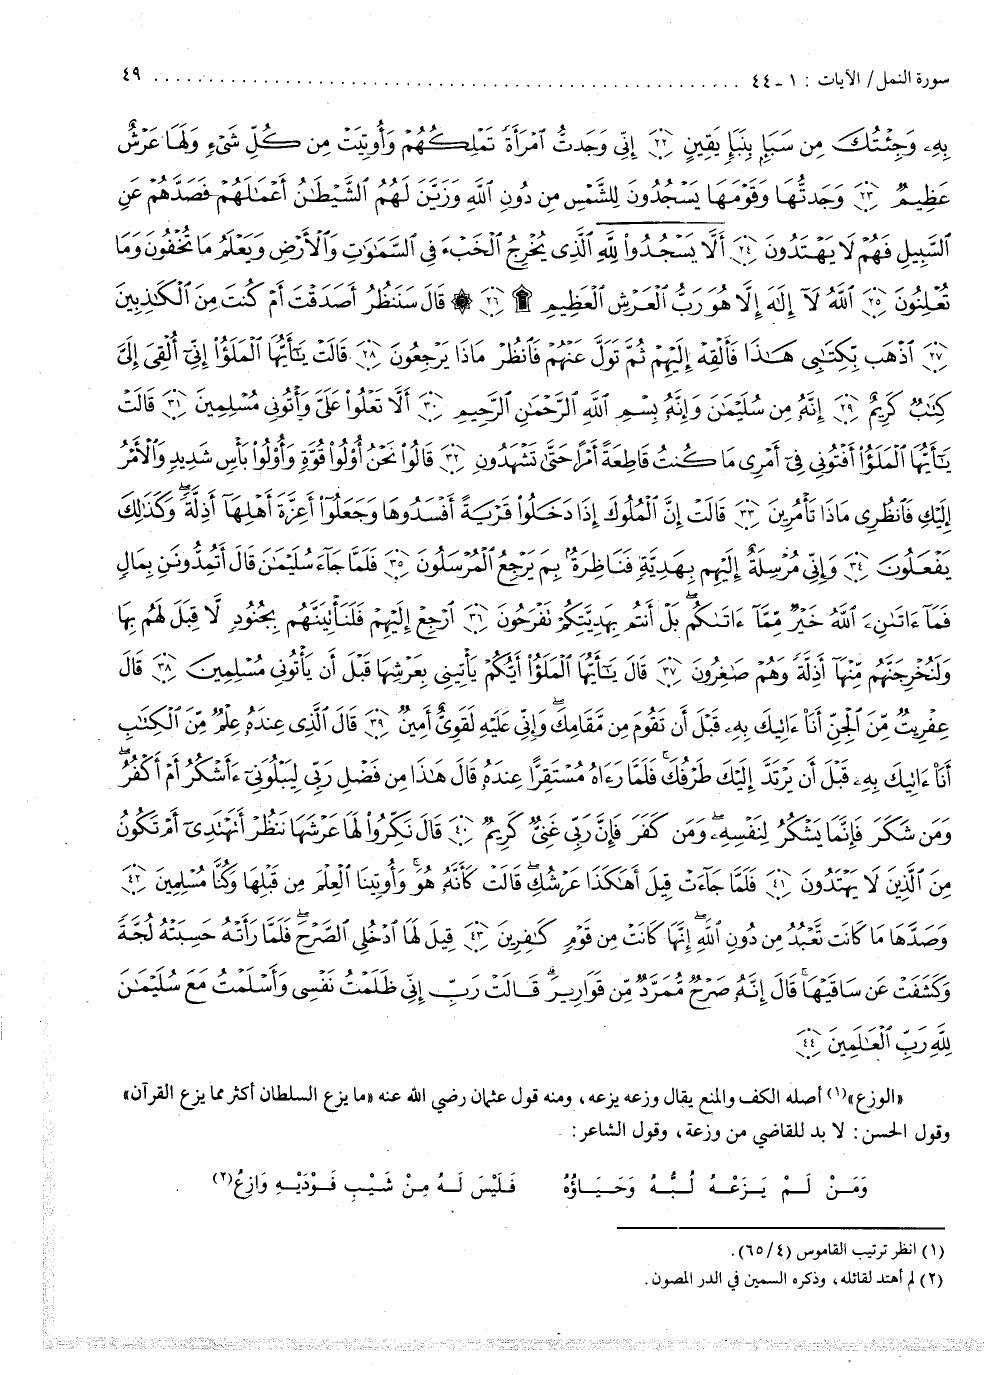 سورة النمل / الآيات : ١ - ٤٤ ........................................................ ٤٩
بِهِۦ وَجِئْتُكَ مِن سَبَإٍۭ بِنَبَإٍ يَقِينٍ ﴿٢٢﴾ إِنِّي وَجَدتُّ ٱمْرَأَةً تَمْلِكُهُمْ وَأُوتِيَتْ مِن كُلِّ شَىْءٍ وَلَهَا عَرْشٌ
عَظِيمٌ ﴿٢٣﴾ وَجَدتُّهَا وَقَوْمَهَا يَسْجُدُونَ لِلشَّمْسِ مِن دُونِ ٱللَّهِ وَزَيَّنَ لَهُمُ ٱلشَّيْطَٰنُ أَعْمَٰلَهُمْ فَصَدَّهُمْ عَنِ
ٱلسَّبِيلِ فَهُمْ لَا يَهْتَدُونَ ﴿٢٤﴾ أَلَّا يَسْجُدُوا۟ لِلَّهِ ٱلَّذِى يُخْرِجُ ٱلْخَبْءَ فِى ٱلسَّمَٰوَٰتِ وَٱلْأَرْضِ وَيَعْلَمُ مَا تُخْفُونَ وَمَا
تُعْلِنُونَ ﴿٢٥﴾ ٱللَّهُ لَآ إِلَٰهَ إِلَّا هُوَ رَبُّ ٱلْعَرْشِ ٱلْعَظِيمِ ۩ ﴿٢٦﴾ ۞ قَالَ سَنَنظُرُ أَصَدَقْتَ أَمْ كُنتَ مِنَ ٱلْكَٰذِبِينَ
﴿٢٧﴾ ٱذْهَب بِّكِتَٰبِى هَٰذَا فَأَلْقِهْ إِلَيْهِمْ ثُمَّ تَوَلَّ عَنْهُمْ فَٱنظُرْ مَاذَا يَرْجِعُونَ ﴿٢٨﴾ قَالَتْ يَٰٓأَيُّهَا ٱلْمَلَؤُا۟ إِنِّىٓ أُلْقِىَ إِلَىَّ
كِتَٰبٌ كَرِيمٌ ﴿٢٩﴾ إِنَّهُۥ مِن سُلَيْمَٰنَ وَإِنَّهُۥ بِسْمِ ٱللَّهِ ٱلرَّحْمَٰنِ ٱلرَّحِيمِ ﴿٣٠﴾ أَلَّا تَعْلُوا۟ عَلَىَّ وَأْتُونِى مُسْلِمِينَ ﴿٣١﴾ قَالَتْ
يَٰٓأَيُّهَا ٱلْمَلَؤُا۟ أَفْتُونِى فِىٓ أَمْرِى مَا كُنتُ قَاطِعَةً أَمْرًا حَتَّىٰ تَشْهَدُونِ ﴿٣٢﴾ قَالُوا۟ نَحْنُ أُو۟لُوا۟ قُوَّةٍ وَأُو۟لُوا۟ بَأْسٍ شَدِيدٍ وَٱلْأَمْرُ
إِلَيْكِ فَٱنظُرِى مَاذَا تَأْمُرِينَ ﴿٣٣﴾ قَالَتْ إِنَّ ٱلْمُلُوكَ إِذَا دَخَلُوا۟ قَرْيَةً أَفْسَدُوهَا وَجَعَلُوٓا۟ أَعِزَّةَ أَهْلِهَآ أَذِلَّةً ۖ وَكَذَٰلِكَ
يَفْعَلُونَ ﴿٣٤﴾ وَإِنِّى مُرْسِلَةٌ إِلَيْهِم بِهَدِيَّةٍ فَنَاظِرَةٌۢ بِمَ يَرْجِعُ ٱلْمُرْسَلُونَ ﴿٣٥﴾ فَلَمَّا جَآءَ سُلَيْمَٰنَ قَالَ أَتُمِدُّونَنِ بِمَالٍ
فَمَآ ءَاتَىٰنِۦَ ٱللَّهُ خَيْرٌ مِّمَّآ ءَاتَىٰكُم ۖ بَلْ أَنتُم بِهَدِيَّتِكُمْ تَفْرَحُونَ ﴿٣٦﴾ ٱرْجِعْ إِلَيْهِمْ فَلَنَأْتِيَنَّهُم بِجُنُودٍ لَّا قِبَلَ لَهُم بِهَا
وَلَنُخْرِجَنَّهُم مِّنْهَآ أَذِلَّةً وَهُمْ صَٰغِرُونَ ﴿٣٧﴾ قَالَ يَٰٓأَيُّهَا ٱلْمَلَؤُا۟ أَيُّكُمْ يَأْتِينِى بِعَرْشِهَا قَبْلَ أَن يَأْتُونِى مُسْلِمِينَ ﴿٣٨﴾ قَالَ
عِفْرِيتٌ مِّنَ ٱلْجِنِّ أَنَا۠ ءَاتِيكَ بِهِۦ قَبْلَ أَن تَقُومَ مِن مَّقَامِكَ ۖ وَإِنِّى عَلَيْهِ لَقَوِىٌّ أَمِينٌ ﴿٣٩﴾ قَالَ ٱلَّذِى عِندَهُۥ عِلْمٌ مِّنَ ٱلْكِتَٰبِ
أَنَا۠ ءَاتِيكَ بِهِۦ قَبْلَ أَن يَرْتَدَّ إِلَيْكَ طَرْفُكَ ۚ فَلَمَّا رَءَاهُ مُسْتَقِرًّا عِندَهُۥ قَالَ هَٰذَا مِن فَضْلِ رَبِّى لِيَبْلُوَنِىٓ ءَأَشْكُرُ أَمْ أَكْفُرُ ۖ
وَمَن شَكَرَ فَإِنَّمَا يَشْكُرُ لِنَفْسِهِۦ ۖ وَمَن كَفَرَ فَإِنَّ رَبِّى غَنِىٌّ كَرِيمٌ ﴿٤٠﴾ قَالَ نَكِّرُوا۟ لَهَا عَرْشَهَا نَنظُرْ أَتَهْتَدِىٓ أَمْ تَكُونُ
مِنَ ٱلَّذِينَ لَا يَهْتَدُونَ ﴿٤١﴾ فَلَمَّا جَآءَتْ قِيلَ أَهَٰكَذَا عَرْشُكِ ۖ قَالَتْ كَأَنَّهُۥ هُوَ ۚ وَأُوتِينَا ٱلْعِلْمَ مِن قَبْلِهَا وَكُنَّا مُسْلِمِينَ ﴿٤٢﴾
وَصَدَّهَا مَا كَانَت تَّعْبُدُ مِن دُونِ ٱللَّهِ ۖ إِنَّهَا كَانَتْ مِن قَوْمٍ كَٰفِرِينَ ﴿٤٣﴾ قِيلَ لَهَا ٱدْخُلِى ٱلصَّرْحَ ۖ فَلَمَّا رَأَتْهُ حَسِبَتْهُ لُجَّةً
وَكَشَفَتْ عَن سَاقَيْهَا ۚ قَالَ إِنَّهُۥ صَرْحٌ مُّمَرَّدٌ مِّن قَوَارِيرَ ۗ قَالَتْ رَبِّ إِنِّى ظَلَمْتُ نَفْسِى وَأَسْلَمْتُ مَعَ سُلَيْمَٰنَ
لِلَّهِ رَبِّ ٱلْعَٰلَمِينَ ﴿٤٤﴾
«الوزع»(١) أصله الكف والمنع يقال وزعه يزعه، ومنه قول عثمان رضي الله عنه «ما يزع السلطان أكثر مما يزع القرآن»
وقول الحسن: لا بد للقاضي من وزعة، وقول الشاعر:
وَمَنْ لَمْ يَزَعْهُ لُبُّهُ وَحَيَاؤُهُ فَلَيْسَ لَهُ مِنْ شَيْبِ فَوْدَيْهِ وَازِعُ(٢)
(١) انظر ترتيب القاموس (٤/ ٦٥).
(٢) لم أهتد لقائله، وذكره السمين في الدر المصون.